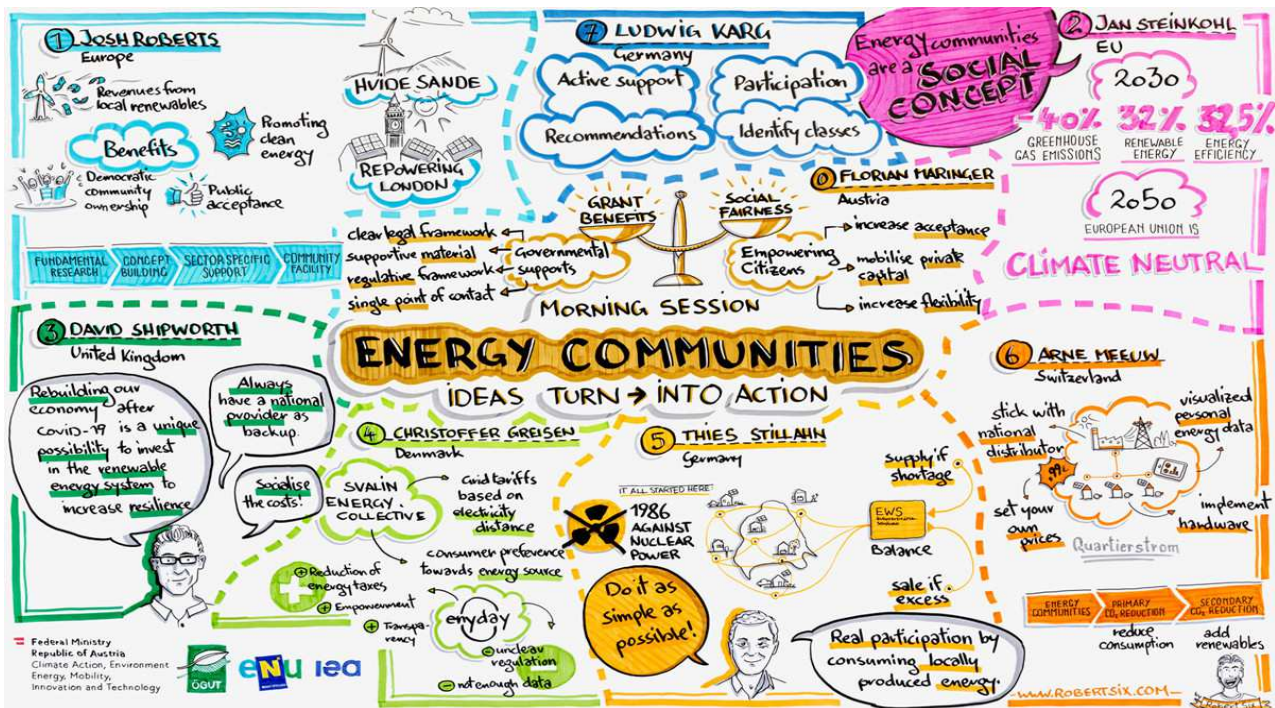 1 JOSH ROBERTS
Europe
Revenues from
local renewables
Benefits
Promoting
clean
energy
Democratic
community
ownership
Public
acceptance
HVIDE SANDE
REPOWERING
LONDON
FUNDAMENTAL
RESEARCH
CONCEPT
BUILDING
SECTOR SPECIFIC
SUPPORT
COMMUNITY
FACILITY
7 LUDWIG KARG
Germany
Active support
Participation
Recommendations
Identify classes
Energy communities
are a SOCIAL
CONCEPT
2 JAN STEINKOHL
EU
2030
-40%
GREENHOUSE
GAS EMISSIONS
32%
RENEWABLE
ENERGY
32,5%
ENERGY
EFFICIENCY
2050
EUROPEAN UNION IS
CLIMATE NEUTRAL
0 FLORIAN MARINGER
Austria
GRANT
BENEFITS
SOCIAL
FAIRNESS
clear legal framework
supportive material
regulative framework
single point of contact
Governmental
supports
Empowering
Citizens
increase acceptance
mobilise private
capital
increase flexibility
MORNING SESSION
ENERGY COMMUNITIES
IDEAS TURN → INTO ACTION
3 DAVID SHIPWORTH
United Kingdom
Rebuilding our
economy after
COVID-19 is a unique
possibility to invest
in the renewable
energy system to
increase resilience
Always
have a national
provider as
backup.
Socialise
the costs!
4 CHRISTOFFER GREISEN
Denmark
SVALIN
ENERGY
COLLECTIVE
Grid tariffs
based on
electricity
distance
consumer preference
towards energy source
+ Reduction of
energy taxes
+ Empowerment
+ Transpa-
rency
enyday
- unclear
regulation
- not enough data
5 THIES STILLAHN
Germany
IT ALL STARTED HERE:
1986
AGAINST
NUCLEAR
POWER
supply if
shortage
EWS
Balance
sale if
excess
Do it as
simple as
possible!
Real participation by
consuming locally
produced energy.
6 ARNE MEEUW
Switzerland
stick with
national
distributor
visualized
personal
energy data
99c
set your
own
prices
implement
hardware
Quartierstrom
ENERGY
COMMUNITIES
PRIMARY
CO2 REDUCTION
SECONDARY
CO2 REDUCTION
reduce
consumption
add
renewables
Federal Ministry
Republic of Austria
Climate Action, Environment
Energy, Mobility,
Innovation and Technology
ÖGUT
eNu
iea
www.ROBERTSIX.COM
Robert Six